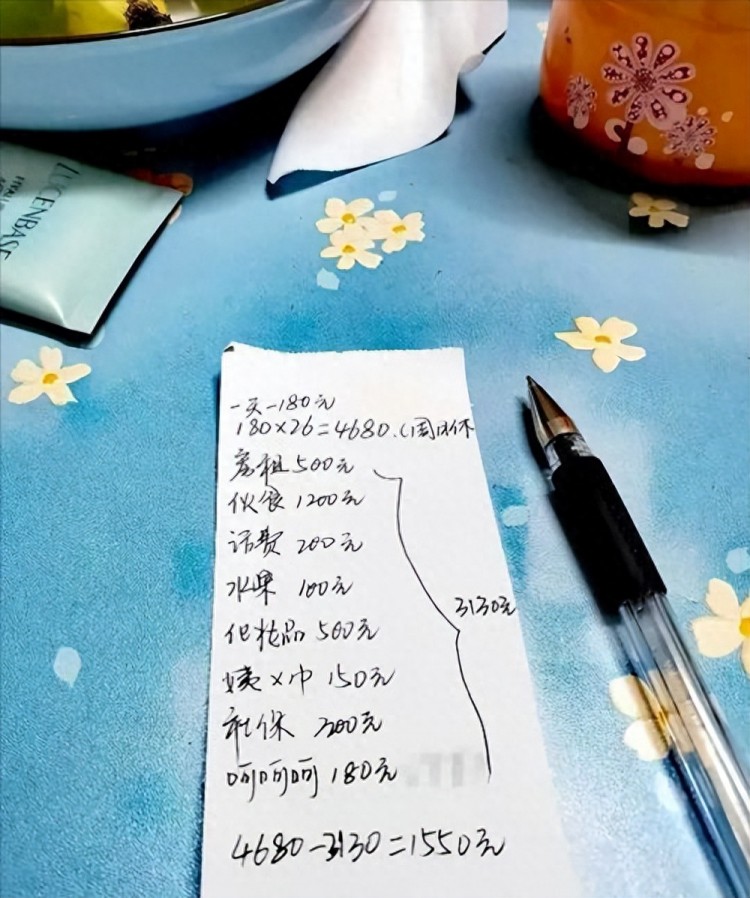 LUCENBASE
一天-180元
180×26=4680.(周日休
房租500元
伙食1200元
话费200元
水果 100元
化妆品500元
姨×巾 150元
社保 300元
呵呵呵 180元
3130元
4680-3130=1550元